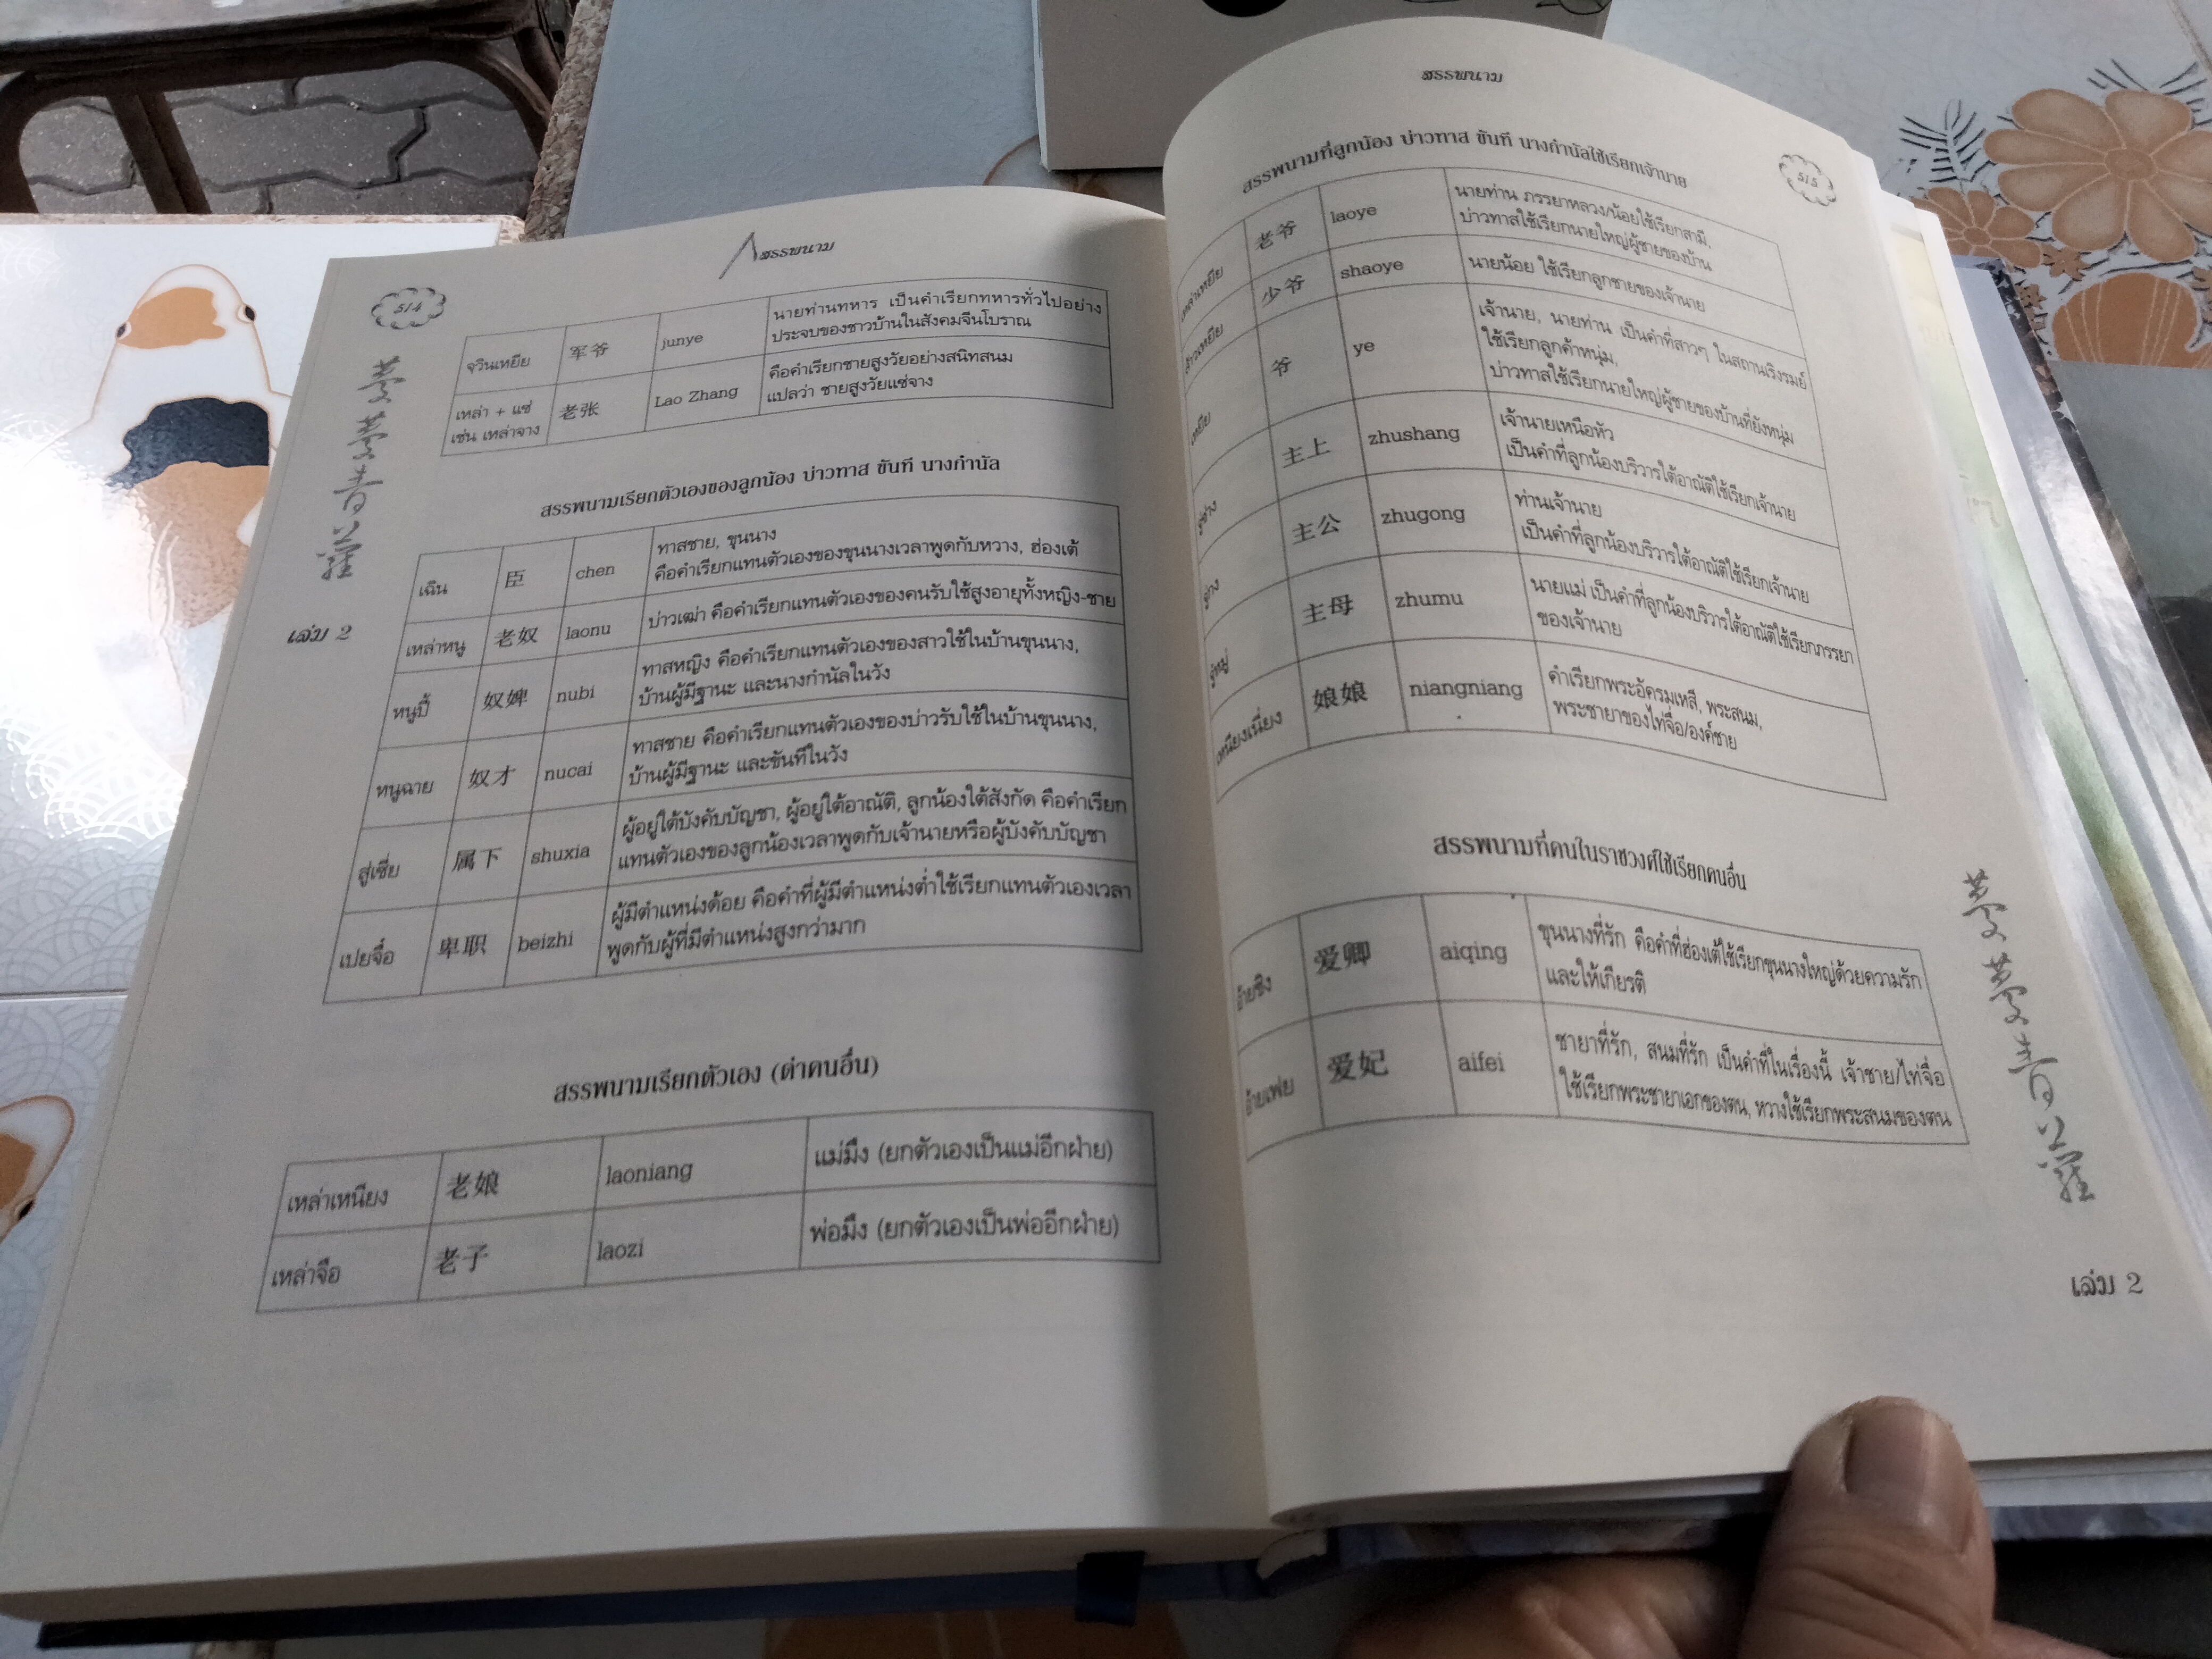 สรรพนาม
514
จวินเหยีย 军爷 junye นายท่านทหาร เป็นคำเรียกทหารทั่วไปอย่าง
ประจบของชาวบ้านในสังคมจีนโบราณ
เหล่า + แซ่ 老张 Lao Zhang คือคำเรียกชายสูงวัยอย่างสนิทสนม
เช่น เหล่าจาง แปลว่า ชายสูงวัยแซ่จาง
สรรพนามเรียกตัวเองของลูกน้อง บ่าวทาส ขันที นางกำนัล
เฉิน 臣 chen ทาสชาย, ขุนนาง
คือคำเรียกแทนตัวเองของขุนนางเวลาพูดกับหวาง, ฮ่องเต้
เหล่าหนู 老奴 laonu บ่าวเฒ่า คือคำเรียกแทนตัวเองของคนรับใช้สูงอายุทั้งหญิง-ชาย
หนูปี้ 奴婢 nubi ทาสหญิง คือคำเรียกแทนตัวเองของสาวใช้ในบ้านขุนนาง,
บ้านผู้มีฐานะ และนางกำนัลในวัง
หนูฉาย 奴才 nucai ทาสชาย คือคำเรียกแทนตัวเองของบ่าวรับใช้ในบ้านขุนนาง,
บ้านผู้มีฐานะ และขันทีในวัง
สู่เซี่ย 属下 shuxia ผู้อยู่ใต้บังคับบัญชา, ผู้อยู่ใต้อาณัติ, ลูกน้องใต้สังกัด คือคำเรียก
แทนตัวเองของลูกน้องเวลาพูดกับเจ้านายหรือผู้บังคับบัญชา
เปยจื๋อ 卑职 beizhi ผู้มีตำแหน่งด้อย คือคำที่ผู้มีตำแหน่งต่ำใช้เรียกแทนตัวเองเวลา
พูดกับผู้ที่มีตำแหน่งสูงกว่ามาก
สรรพนามเรียกตัวเอง (ด่าคนอื่น)
เหล่าเหนียง 老娘 laoniang แม่มึง (ยกตัวเองเป็นแม่อีกฝ่าย)
เหล่าจือ 老子 laozi พ่อมึง (ยกตัวเองเป็นพ่ออีกฝ่าย)
เล่ม 2
สรรพนาม
515
สรรพนามที่ลูกน้อง บ่าวทาส ขันที นางกำนัลใช้เรียกเจ้านาย
เหล่าเหยีย 老爷 laoye นายท่าน ภรรยาหลวง/น้อยใช้เรียกสามี,
บ่าวทาสใช้เรียกนายใหญ่ผู้ชายของบ้าน
少爷 shaoye นายน้อย ใช้เรียกลูกชายของเจ้านาย
เหยีย 爷 ye เจ้านาย, นายท่าน เป็นคำที่สาวๆ ในสถานเริงรมย์
ใช้เรียกลูกค้าหนุ่ม,
บ่าวทาสใช้เรียกนายใหญ่ผู้ชายของบ้านที่ยังหนุ่ม
主上 zhushang เจ้านายเหนือหัว
เป็นคำที่ลูกน้องบริวารใต้อาณัติใช้เรียกเจ้านาย
主公 zhugong ท่านเจ้านาย
เป็นคำที่ลูกน้องบริวารใต้อาณัติใช้เรียกเจ้านาย
主母 zhumu นายแม่ เป็นคำที่ลูกน้องบริวารใต้อาณัติใช้เรียกภรรยา
ของเจ้านาย
เหนียงเนี่ยง 娘娘 niangniang คำเรียกพระอัครมเหสี, พระสนม,
พระชายาของไท่จื่อ/องค์ชาย
สรรพนามที่คนในราชวงศ์ใช้เรียกคนอื่น
อ้ายชิง 爱卿 aiqing ขุนนางที่รัก คือคำที่ฮ่องเต้ใช้เรียกขุนนางใหญ่ด้วยความรัก
และให้เกียรติ
อ้ายเฟย 爱妃 aifei ชายาที่รัก, สนมที่รัก เป็นคำที่ในเรื่องนี้ เจ้าชาย/ไท่จื่อ
ใช้เรียกพระชายาเอกของตน, หวางใช้เรียกพระสนมของตน
เล่ม 2